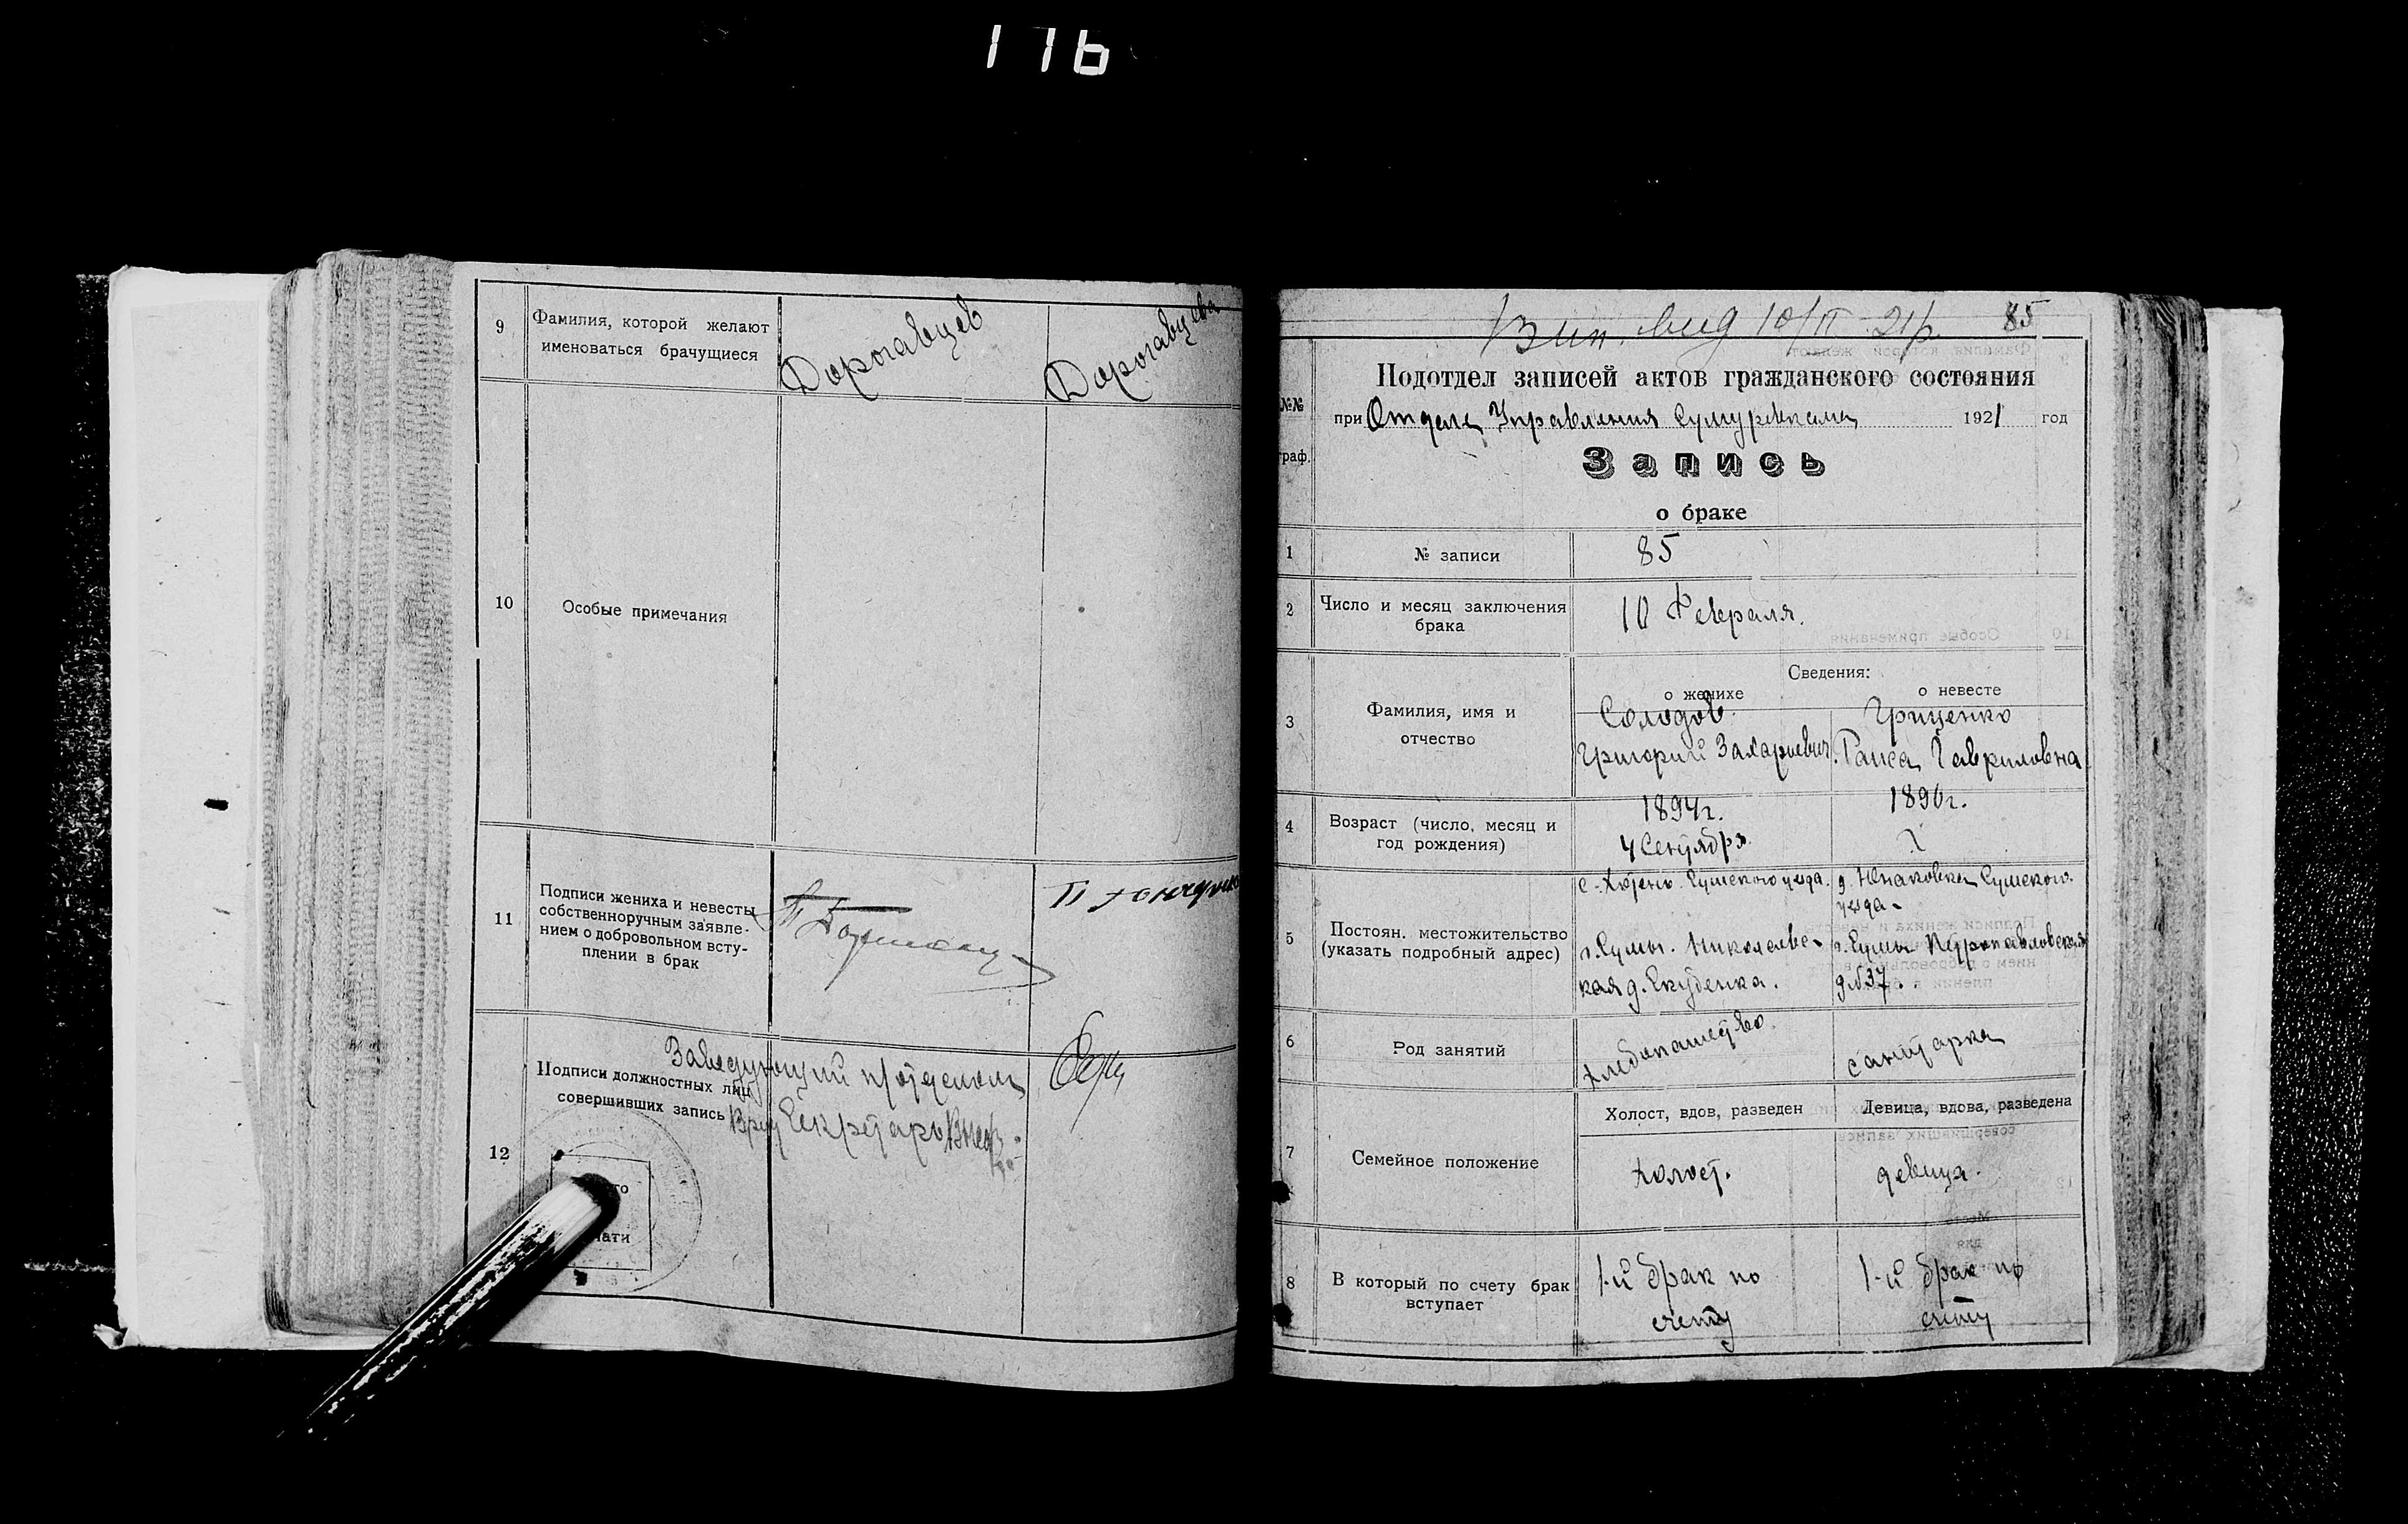 116
9
Фамилия, которой желают
именоваться брачущиеся
Дорогавцев
Дорогавцева
10
Особые примечания
11
Подписи жениха и невесты
собственноручным заявле-
нием о добровольном всту-
плении в брак
12
Подписи должностных лиц
совершивших запись
Заведующий п/отделом
Секретарь
Вип. вид 10/II 21р.
85
№№
граф.
Подотдел записей актов гражданского состояния
при Отделе Управления 1921 год
Запись
о браке
1
№ записи
85
2
Число и месяц заключения
брака
10 Февраля.
Сведения:
о женихе
о невесте
3
Фамилия, имя и
отчество
Солодов
Григорий Захариевич
Гриценко
Раиса Гавриловна
4
Возраст (число, месяц и
год рождения)
1894г.
4 Сентября
1890г.
?
5
Постоян. местожительство
(указать подробный адрес)
с. Сумского уезда.
г. Сумы. Николаевс-
кая д.
д. Юнаковка Сумского
уезда.
г. Сумы Петропавловская
д № 37.
6
Род занятий
хлебопашество
санитарка
7
Семейное положение
Холост, вдов, разведен
Девица, вдова, разведена
холост.
девица.
8
В который по счету брак
вступает
1-й брак по
счету
1-й брак по
счету